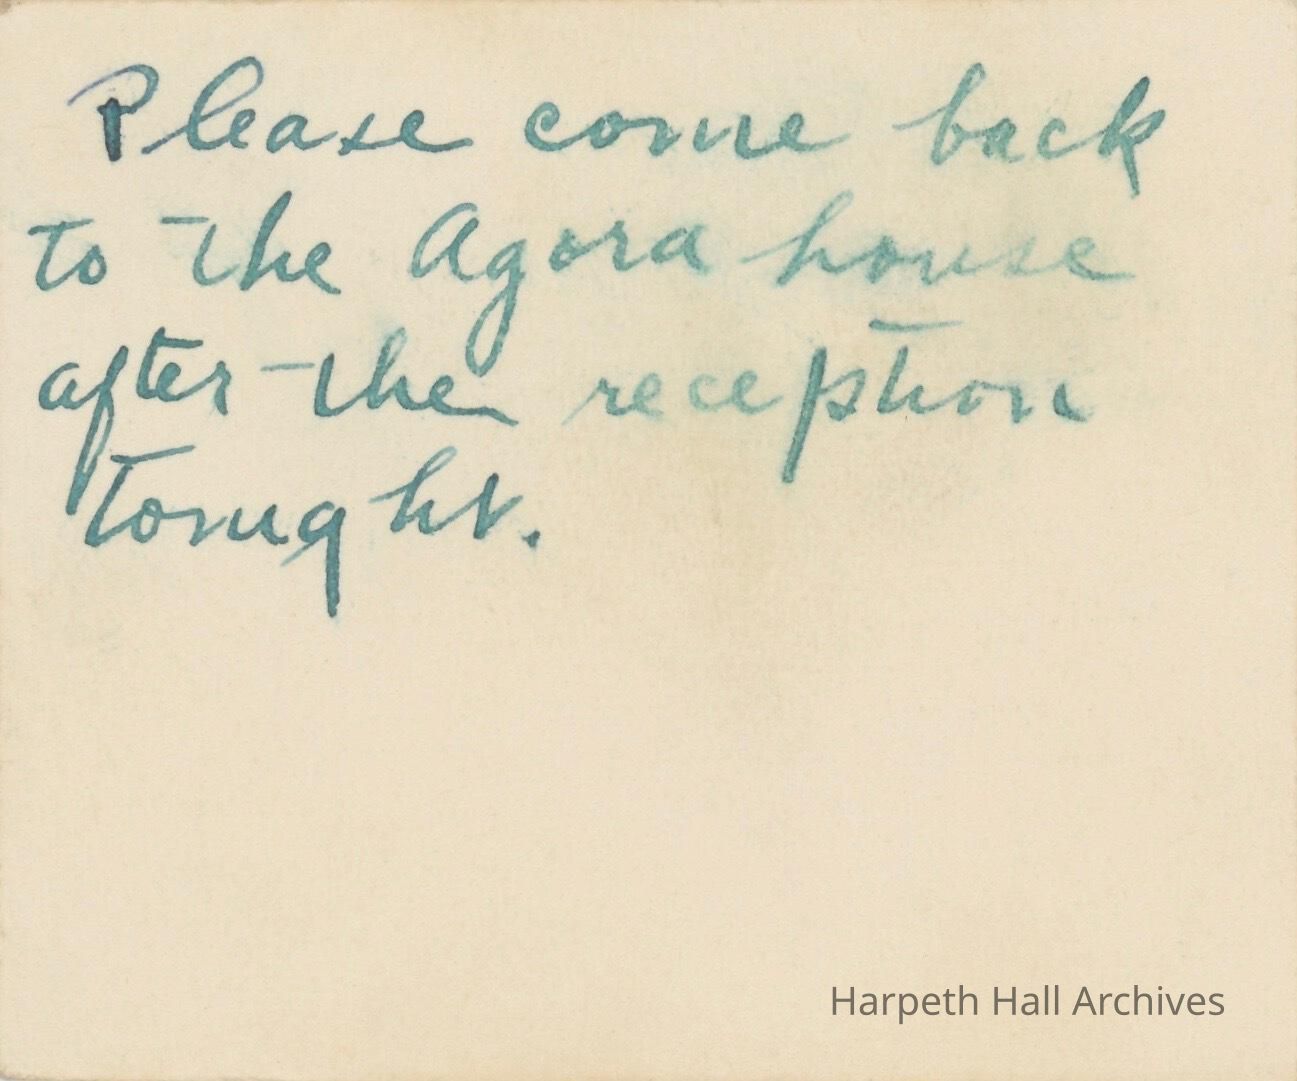 Please come back
to the Agora house
after the reception
tonight.
Harpeth Hall Archives